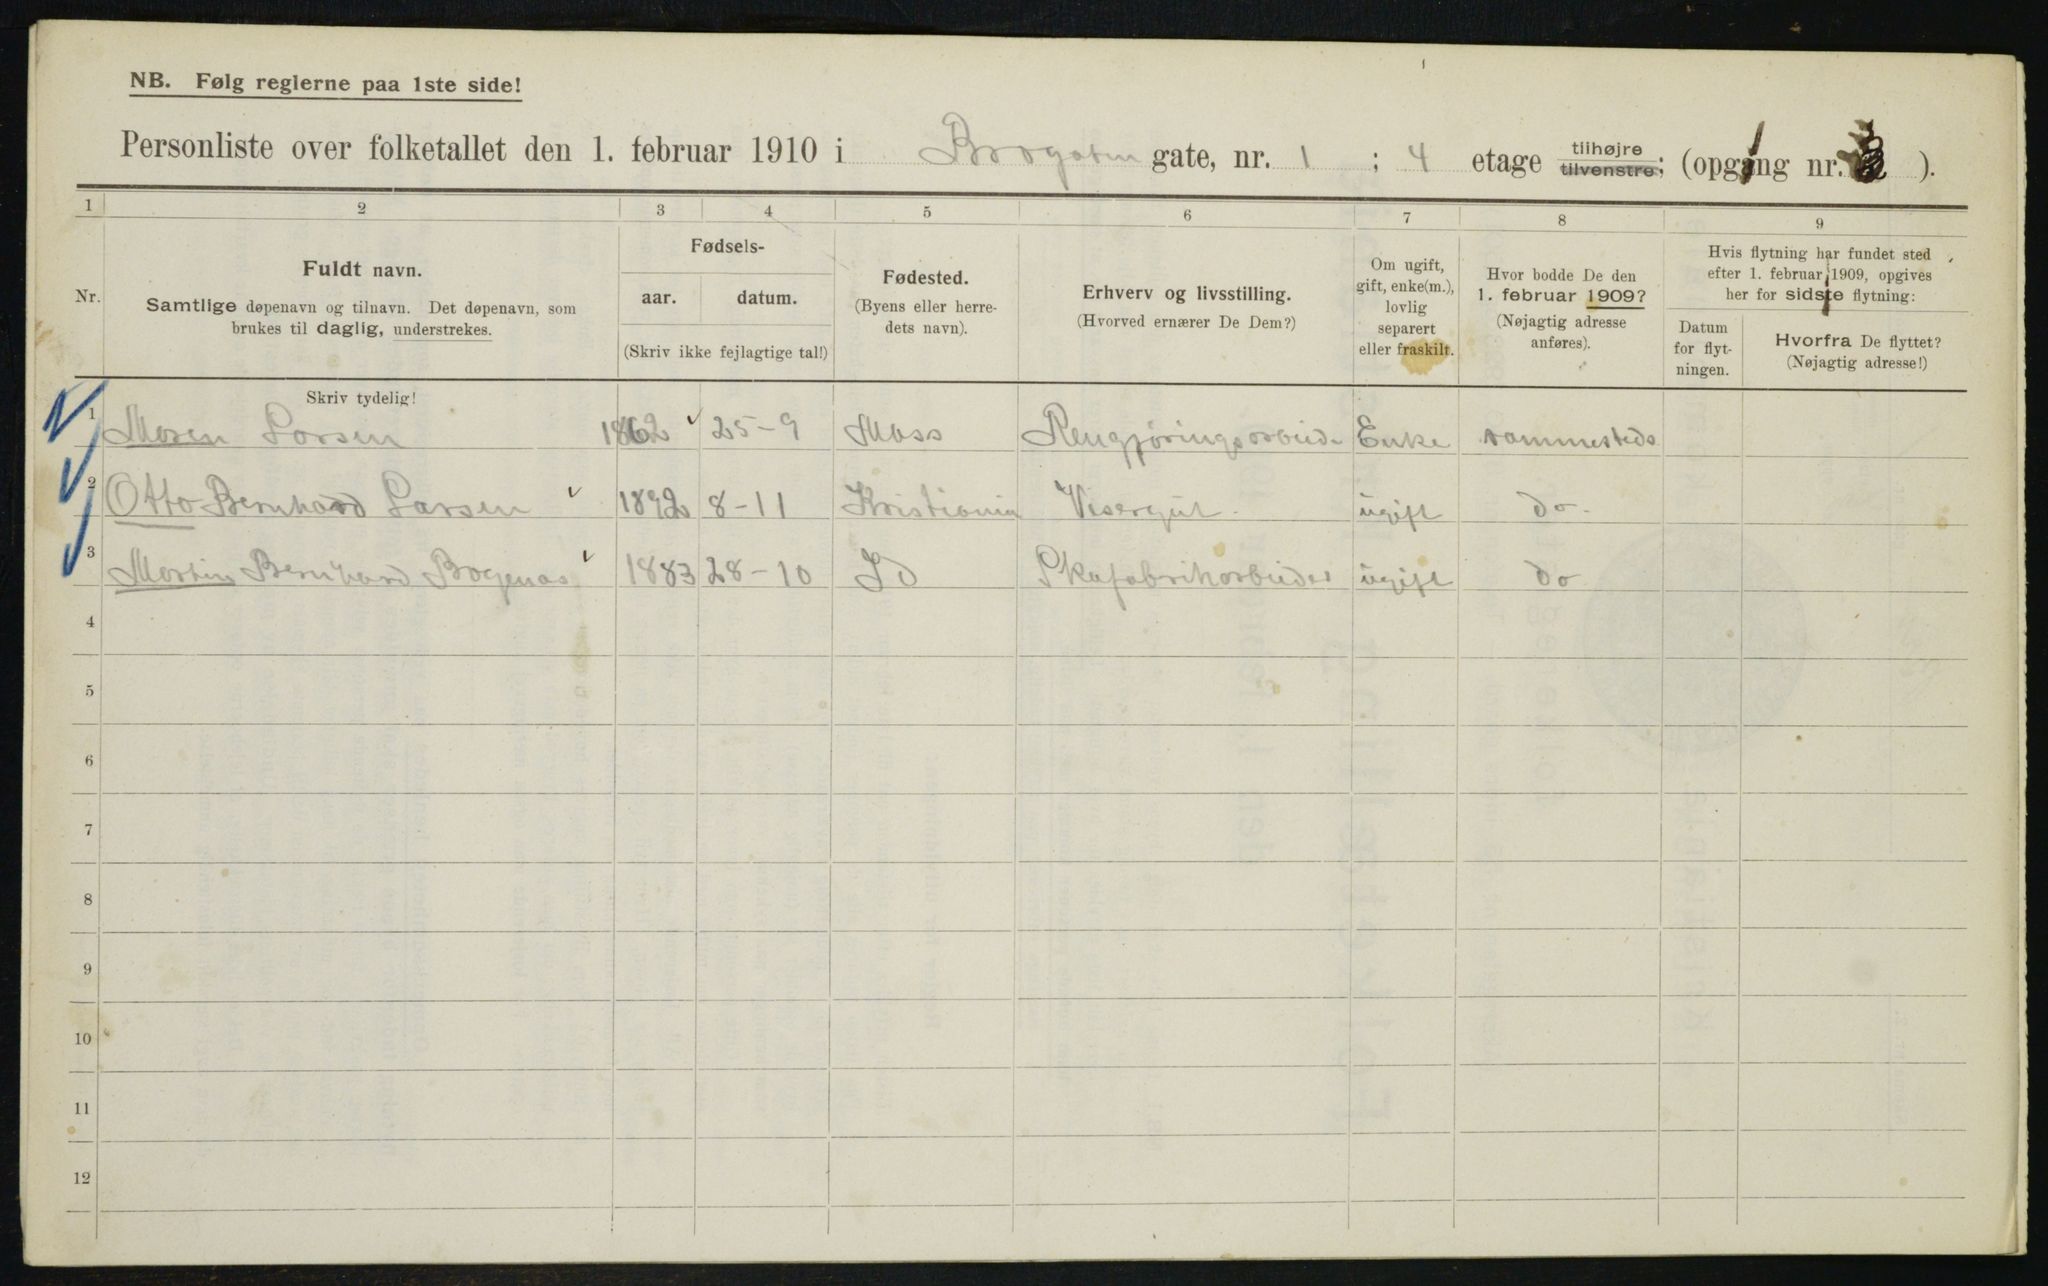 NB. Følg reglerne paa 1ste side!
Personliste over folketallet den 1. februar 1910 i Brogaten gate, nr. 1 ; 4 etage tilhøjre tilvenstre; (opgang nr. ).
1 2 3 4 5 6 7 8 9
Nr.
Fuldt navn.
Samtlige døpenavn og tilnavn. Det døpenavn, som
brukes til daglig, understrekes.
Fødsels-
aar.
datum.
(Skriv ikke fejlagtige tal!)
Fødested.
(Byens eller herre-
dets navn).
Erhverv og livsstilling.
(Hvorved ernærer De Dem?)
Om ugift,
gift, enke(m.),
lovlig
separert
eller fraskilt.
Hvor bodde De den
1. februar 1909?
(Nøjagtig adresse
anføres).
Hvis flytning har fundet sted
efter 1. februar 1909, opgives
her for sidste flytning:
Datum
for flyt-
ningen.
Hvorfra De flyttet?
(Nøjagtig adresse!)
Skriv tydelig!
1 Maren Larsen 1862 25-9 Moss Rengjøringsarbeide Enke sammesteds
2 Otto Bernhard Larsen 1892 8-11 Kristiania Visergut ugift do.
3 Martin Bernhard Bogenæs 1883 28-10 Id Skofabrikarbeider ugift do
4
5
6
7
8
9
10
11
12